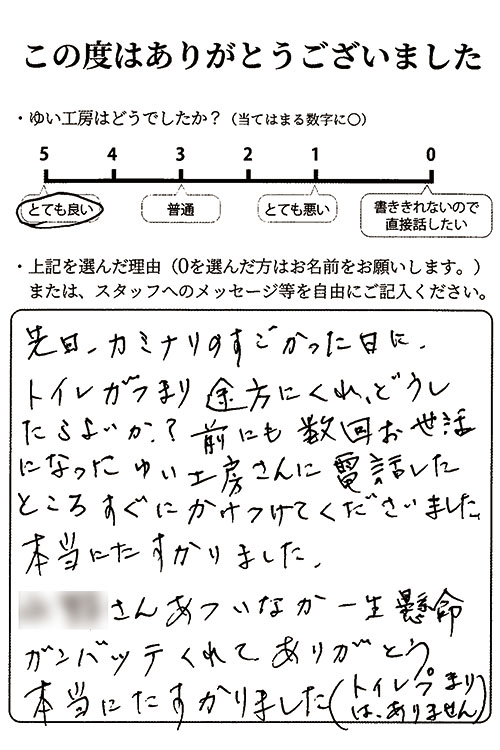 この度はありがとうございました
・ゆい工房はどうでしたか？（当てはまる数字に〇）
5 4 3 2 1 0
とても良い 普通 とても悪い 書ききれないので
直接話したい
・上記を選んだ理由（0を選んだ方はお名前をお願いします。）
または、スタッフへのメッセージ等を自由にご記入ください。
先日、カミナリのすごかった日に、
トイレがつまり 途方にくれ、どうし
たらよいか？前にも数回お世話
になった ゆい工房さんに電話した
ところすぐにかけつけてくださいました
本当にたすかりました。
さんあついなか一生懸命
ガンバッテくれて ありがとう。
本当にたすかりました（トイレ まり
は、ありません）